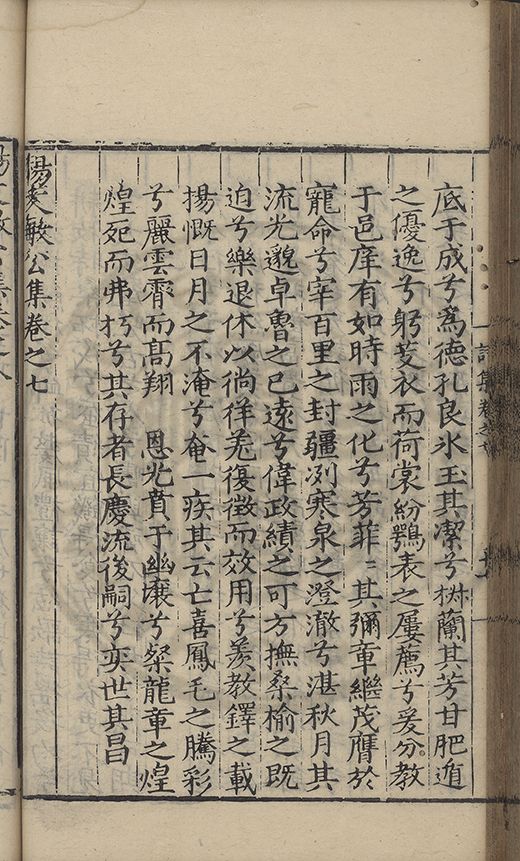 底于成兮為德孔良氷玉其潔兮樹蘭其芳甘肥遁
之優逸兮躬芰衣而荷裳紛鶚表之屢薦兮爰分教
于邑庠有如時雨之化兮芳菲〻其彌章繼茂膺於
寵命兮宰百里之封疆冽寒泉之澄澈兮湛秋月其
流光邈卓魯之已遠兮偉政績之可方撫桑榆之既
迫兮樂退休以徜徉羌復徴而效用兮羨教鐸之載
揚慨日月之不淹兮奄一疾其云亡喜鳳毛之騰彩
兮麗雲霄而高翔 恩光賁于幽壤兮粲龍章之煌
煌死而弗朽兮其存者長慶流後嗣兮奕世其昌
楊文敏公集卷之七